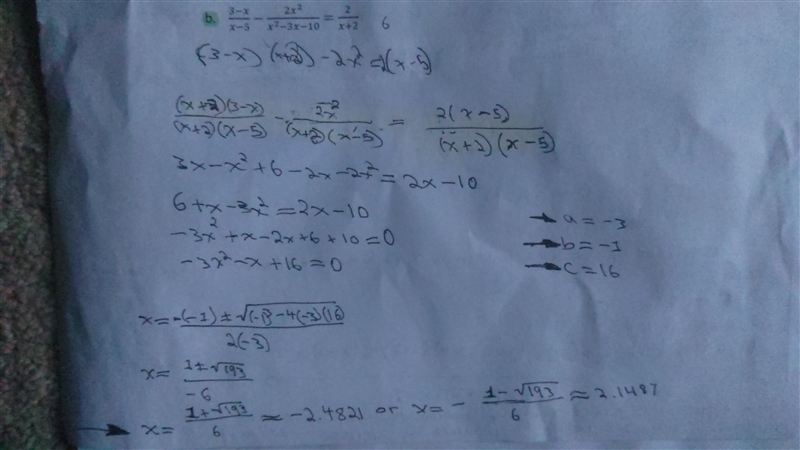 b. (3-x)/(x-5) - 2x²/(x²-3x-10) = 2/(x+2) 6
(3-x) (x+2) - 2x² = 2(x-5)
(x+2)(3-x)/(x+2)(x-5) - 2x²/(x+2)(x-5) = 2(x-5)/(x+2)(x-5)
3x-x²+6-2x-2x² = 2x-10
6+x-3x² = 2x-10
→ a = -3
-3x²+x-2x+6+10=0
→ b = -1
-3x²-x+16=0
→ c = 16
x = -(-1) ± √((-1)²-4(-3)(16))/2(-3)
x = 1±√193/-6
→ x = 1+√193/6 ≈ -2.4821 or x = - 1-√193/6 ≈ 2.1487